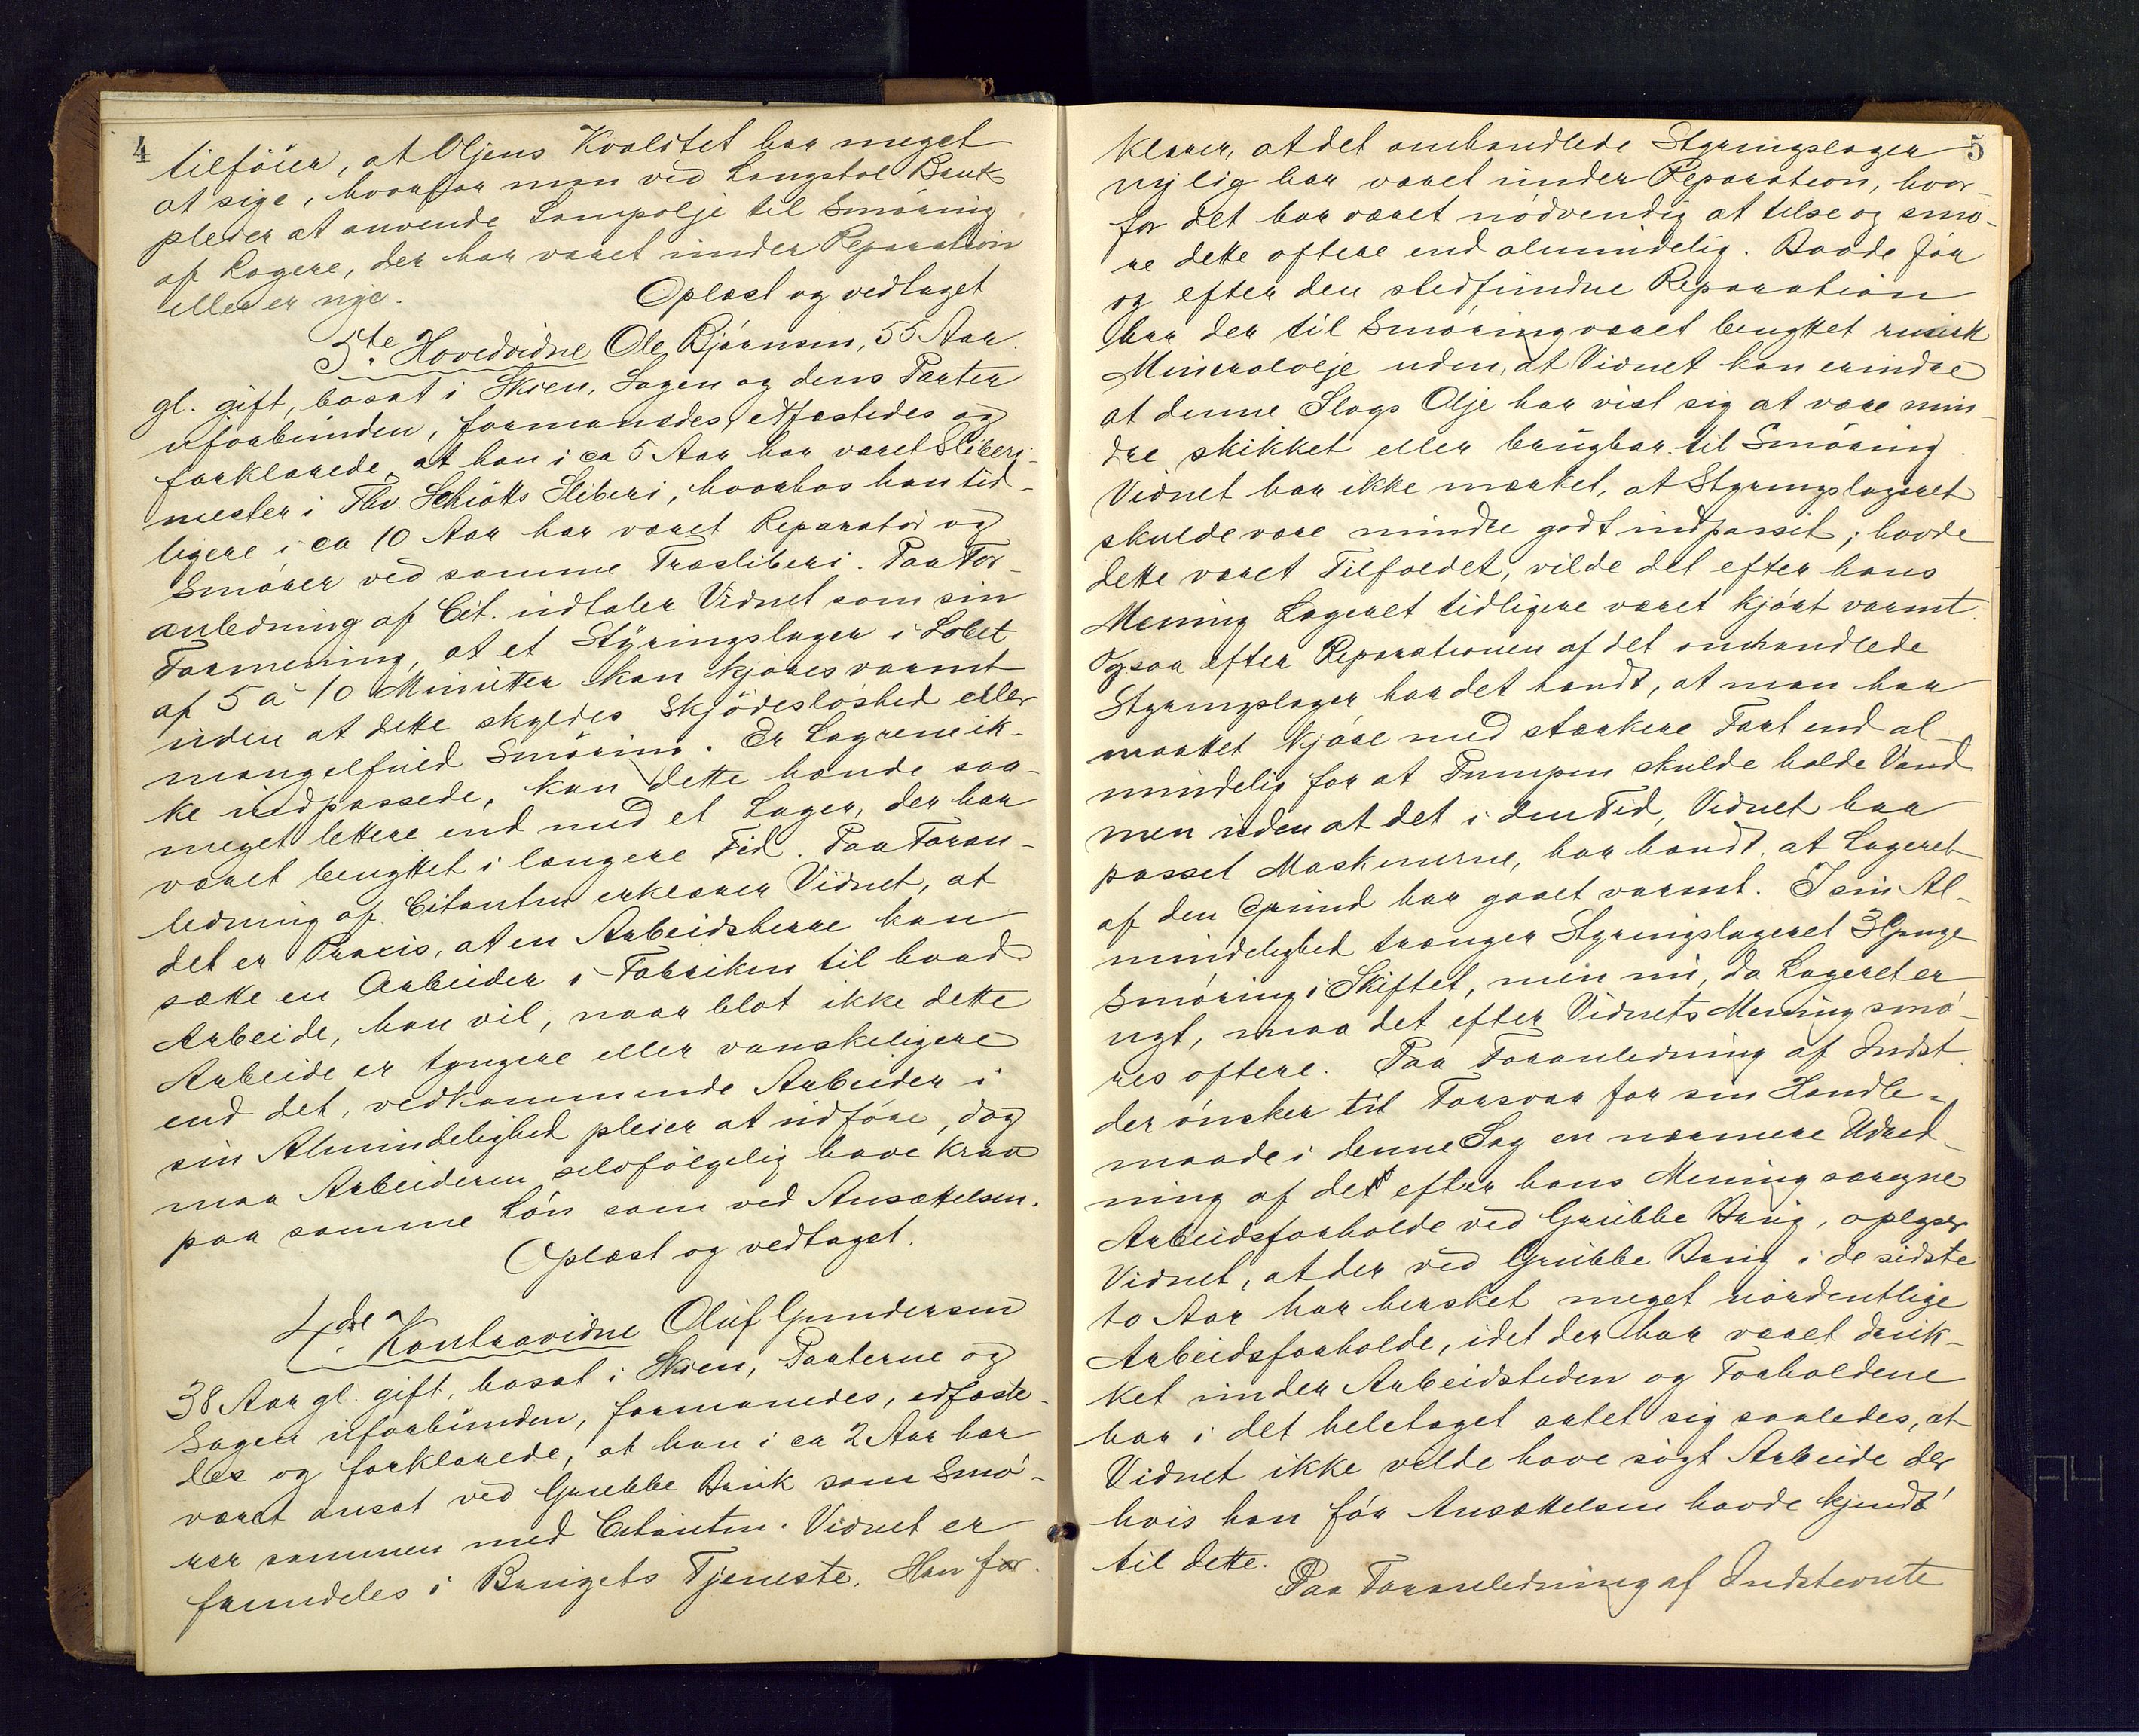 4
tilföier, at Oljens Kvalitet har meget
at sige, hvorfor man ved Langstol Bruk
pleier at anvende Lampolje til Smöring
af Lagere, der har været under Reparation
eller er nye.
Oplæst og vedtaget
5te Hovedvidne Ole Björnsen, 55 Aar
gl. gift, bosat i Skien, Sagen og dens Parter
uforbunden, formanedes, edfæstedes og
forklarede, at han i ca 5 Aar har været Sliberi-
mester i Thv. Schiötts Sliberi, hvorhos han tid-
ligere i ca 10 Aar har været Reparatör og
Smörer ved samme Træsliberi. Paa For-
anledning af Cit. udtaler Vidnet som sin
Formening, at et Styringslager i Löbet
af 5 à 10 Minutter kan kjöres varmt
uden at dette skyldes Skjödeslöshed eller
mangelfuld Smöring. Er Lagrene ik-
ke indpassede, kan dette hænde saa-
meget lettere end med et Lager, der har
været benyttet i længere Tid. Paa Foran-
ledning af Citanten erklærer Vidnet, at
det er Praxis, at en Arbeidsherre kan
sætte en Arbeider i Fabriken til hvad
Arbeide, han vil, naar blot ikke dette
Arbeide er tyngere eller vanskeligere
end det, vedkommende Arbeider i
sin Almindelighed pleier at udföre, dog
maa Arbeideren selvfölgelig have Krav
paa samme Lön som ved Ansættelsen.
Oplæst og vedtaget.
4de Kontravidne Oluf Gundersen
38 Aar gl. gift, bosat i Skien, Parterne og
Sagen uforbunden, formanedes, edfæste-
des og forklarede, at han i ca 2 Aar har
været ansat ved Grubbe Bruk som Smö-
rer sammen med Citanten. Vidnet er
fremdeles i Brugets Tjeneste. Han for-
5
klarer, at det omhandlede Styringslager
nylig har været under Reparation, hvor-
for det har været nödvendig at tilse og smö-
re dette oftere end almindelig. Baade för
og efter den stedfundne Reparation
har der til Smöring været benyttet russisk
Mineralolje uden, at Vidnet kan erindre
at denne Slags Olje har vist sig at være min-
dre skikket eller brugbar til Smöring.
Vidnet har ikke mærket, at Styringslageret
skulde være mindre godt indpasset; havde
dette været Tilfældet, vilde det efter hans
Mening Lageret tidligere været kjört varmt.
Ogsaa efter Reparationen af det omhandlede
Styringslager har det hændt, at man har
maattet kjöre med stærkere Fart end al-
mindelig for at Pumpen skulde holde Vand
men uden at det i den Tid, Vidnet har
passet Maskinerne, har hændt, at Lageret
af den Grund har gaaet varmt. I sin Al-
mindelighed trænger Styringslageret 3 Gange
Smöring i Skiftet, men nu, da Lageret er
nyt, maa det efter Vidnets Mening smö-
res oftere. Paa Foranledning af Indst.
der önsker til Forsvar for sin Handle-
maade i denne Sag en nærmere Udred-
ning af det efter hans Mening særegne
Arbeidsforholde ved Grubbe Brug, oplyser
Vidnet, at der ved Grubbe Brug i de sidste
to Aar har hersket meget uordentlige
Arbeidsforholde, idet der har været druk-
ket under Arbeidstiden og Forholdene
har i det heletaget artet sig saaledes, at
Vidnet ikke vilde have sögt Arbeide der
hvis han för Ansættelsen havde kjendt
til dette.
Paa Foranledning af Indstevnte